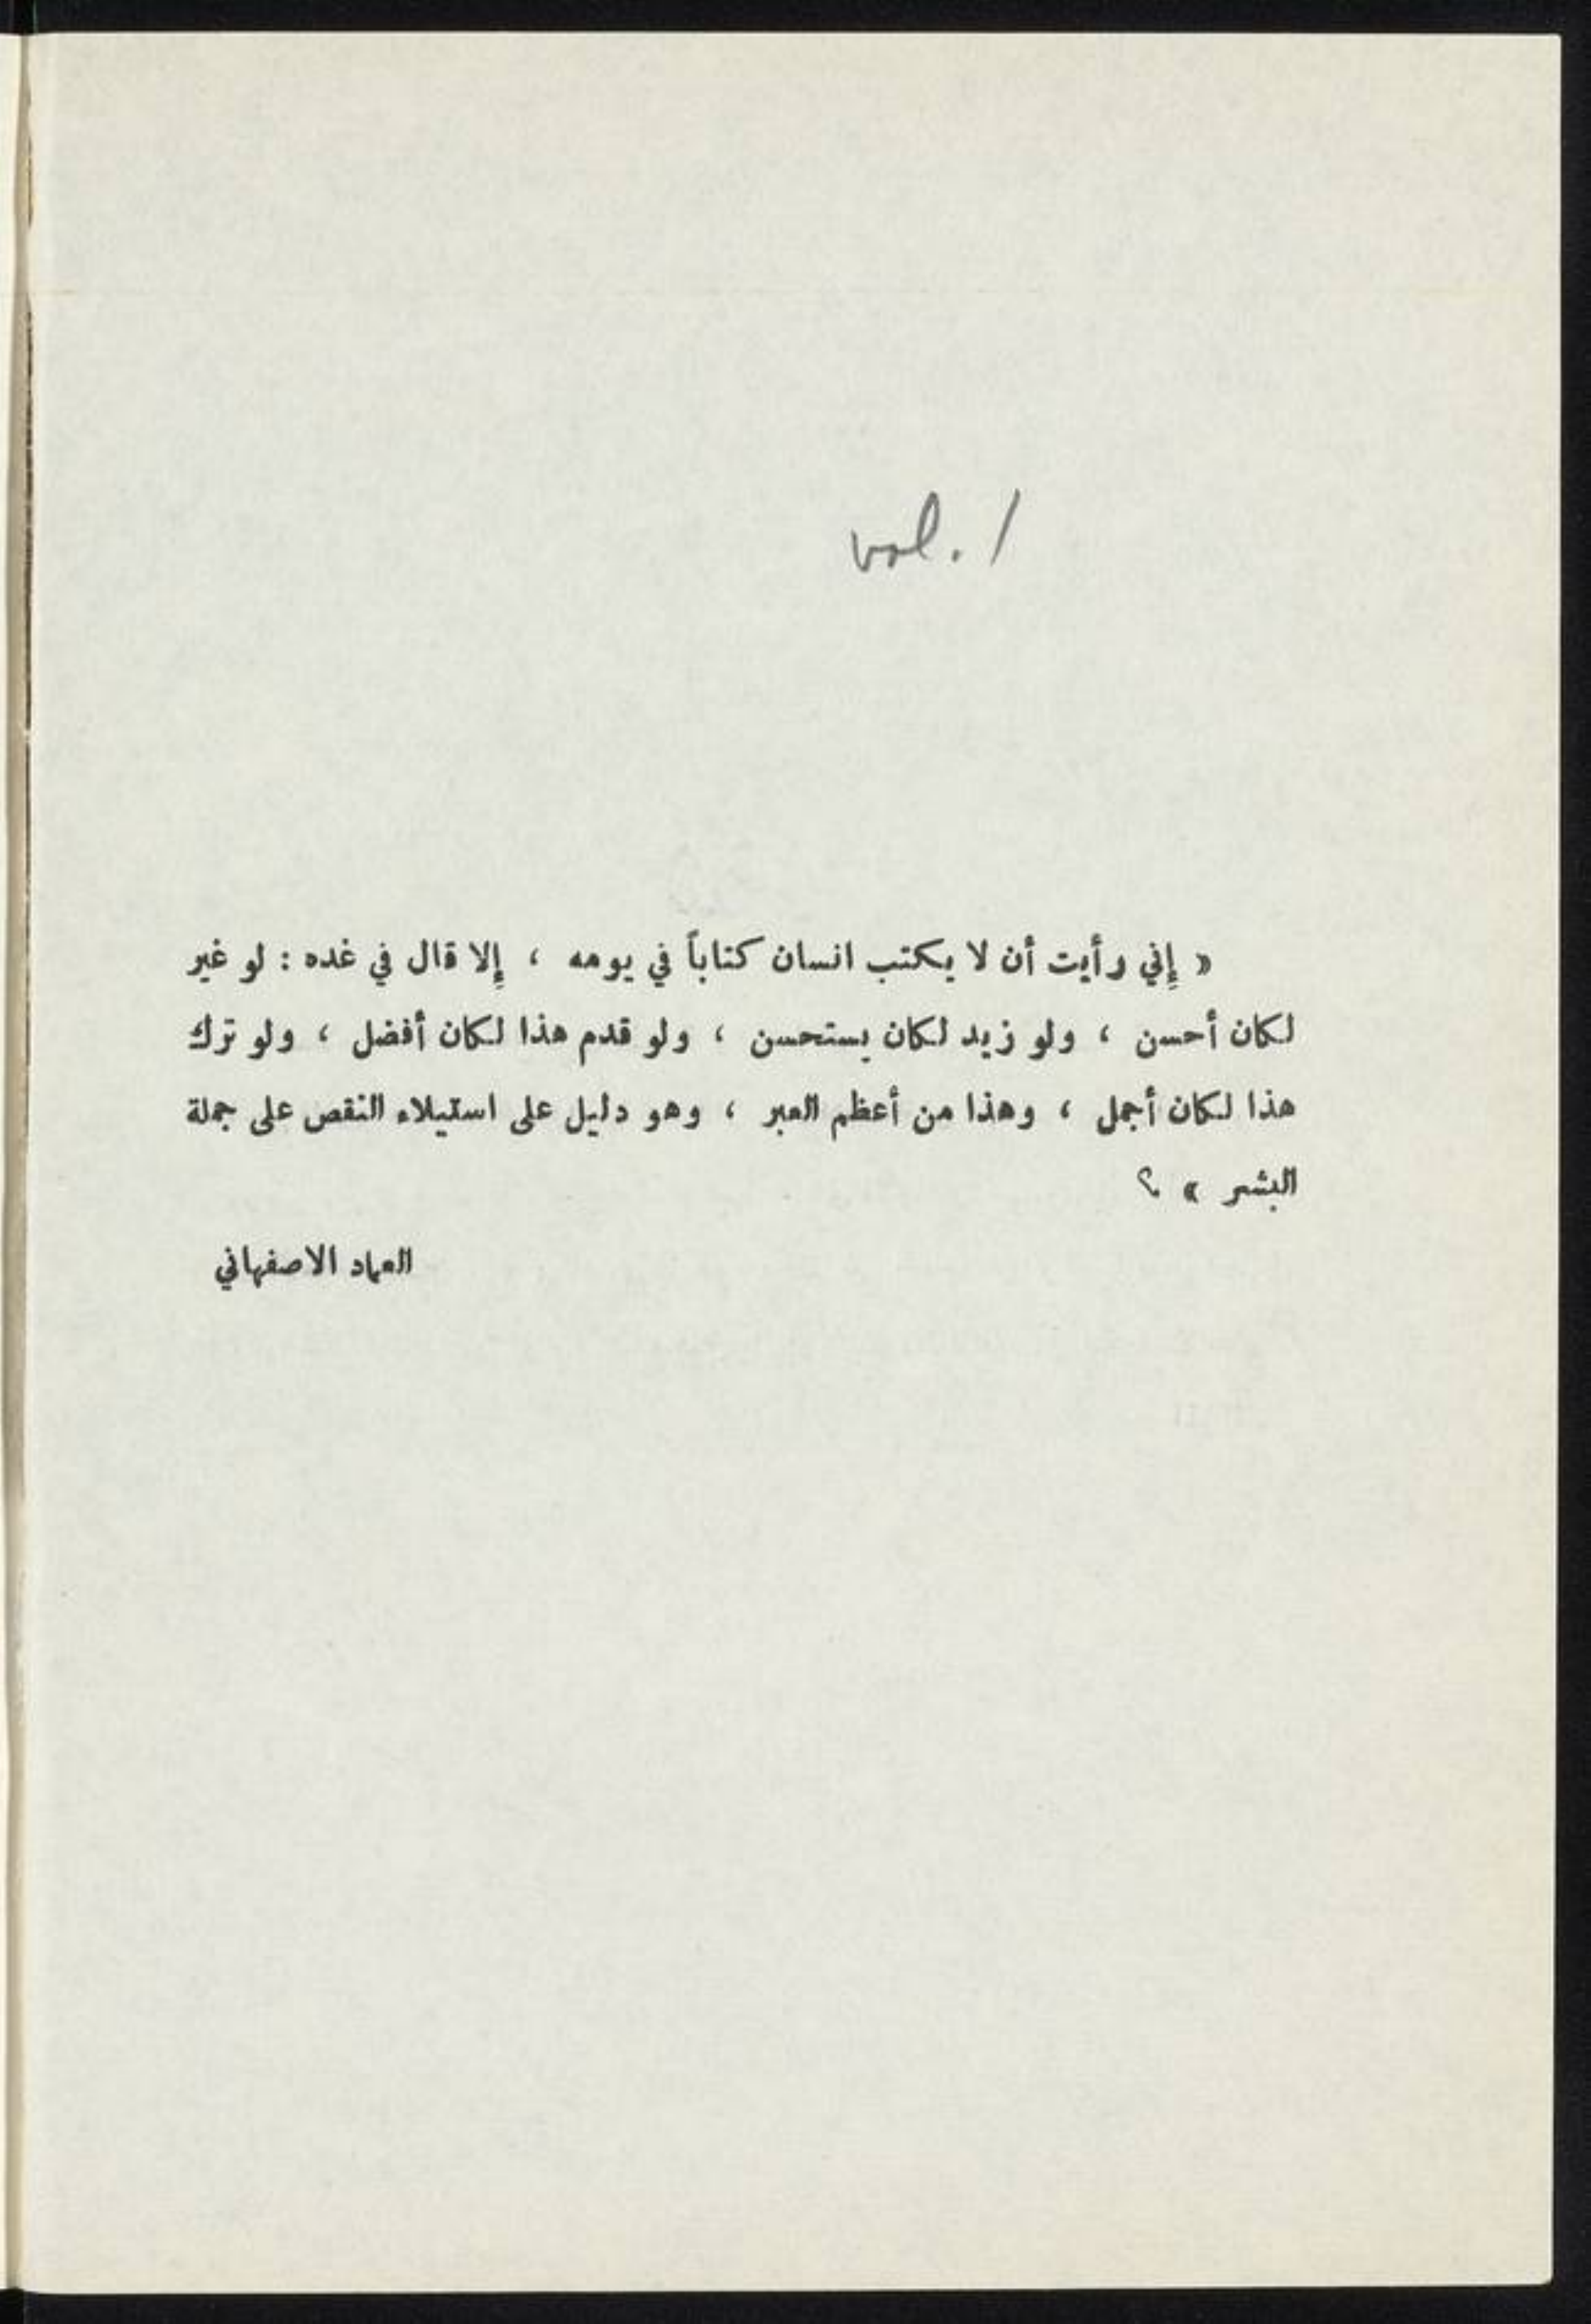 vol. 1
« إِني رأيت أن لا يكتب انسان كتاباً في يومه ، إِلا قال في غده : لو غير
لكان أحسن ، ولو زيد لكان يستحسن ، ولو قدم هذا لكان أفضل ، ولو ترك
هذا لكان أجمل ، وهذا من أعظم العبر ، وهو دليل على استيلاء النقص على جملة
البشر » ؟
العماد الاصفهاني